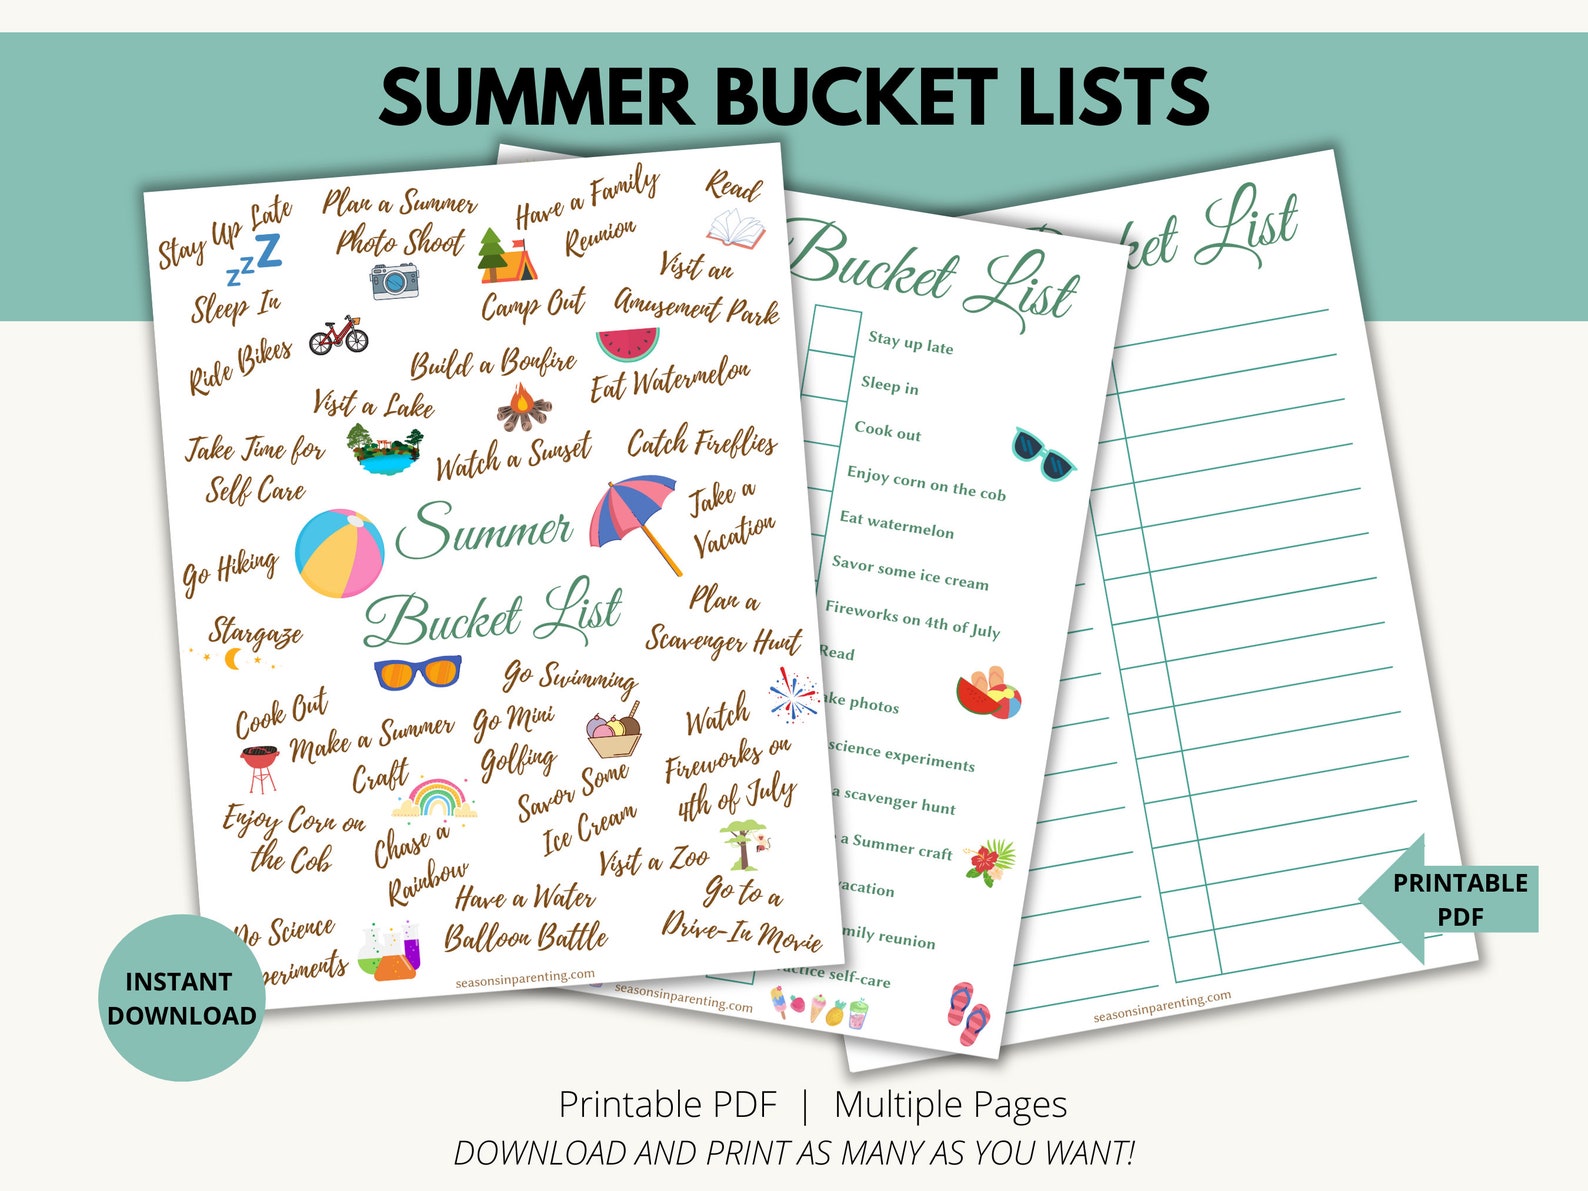 SUMMER BUCKET LISTS
Stay Up Late
Plan a Summer
Photo Shoot
Have a Family
Reunion
Read
Sleep In
Camp Out
Visit an
Amusement Park
Ride Bikes
Build a Bonfire
Eat Watermelon
Visit a Lake
Take Time for
Self Care
Watch a Sunset
Catch Fireflies
Take a
Vacation
Go Hiking
Summer
Bucket List
Plan a
Scavenger Hunt
Stargaze
Go Swimming
Cook Out
Make a Summer
Craft
Go Mini
Golfing
Watch
Fireworks on
4th of July
Savor Some
Ice Cream
Enjoy Corn on
the Cob
Chase a
Rainbow
Visit a Zoo
Have a Water
Balloon Battle
Go to a
Drive-In Movie
Do Science
periments
seasonsinparenting.com
Bucket List
Stay up late
Sleep in
Cook out
Enjoy corn on the cob
Eat watermelon
Savor some ice cream
Fireworks on 4th of July
Read
ake photos
science experiments
a scavenger hunt
a Summer craft
vacation
mily reunion
actice self-care
seasonsinparenting.com
ket List
seasonsinparenting.com
INSTANT
DOWNLOAD
PRINTABLE
PDF
Printable PDF | Multiple Pages
DOWNLOAD AND PRINT AS MANY AS YOU WANT!